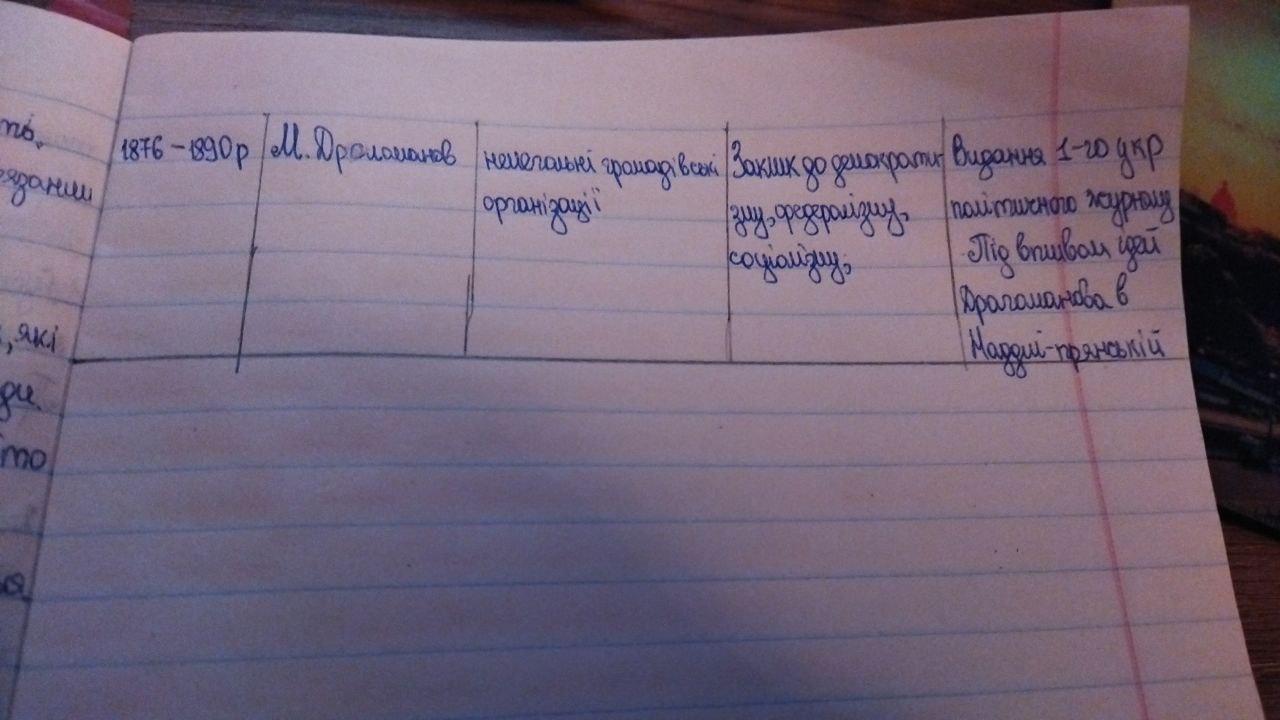 ть.
язании
, які
ди.
то
ся
1876 – 1890 р
М. Драгоманов
нелегальні громадівські
організації
Заклик до демократи-
зму, федералізму,
соціалізму;
Видання 1-го укр
політичного журналу
Під впливом ідей
Драгоманова в
Наддні-прянській